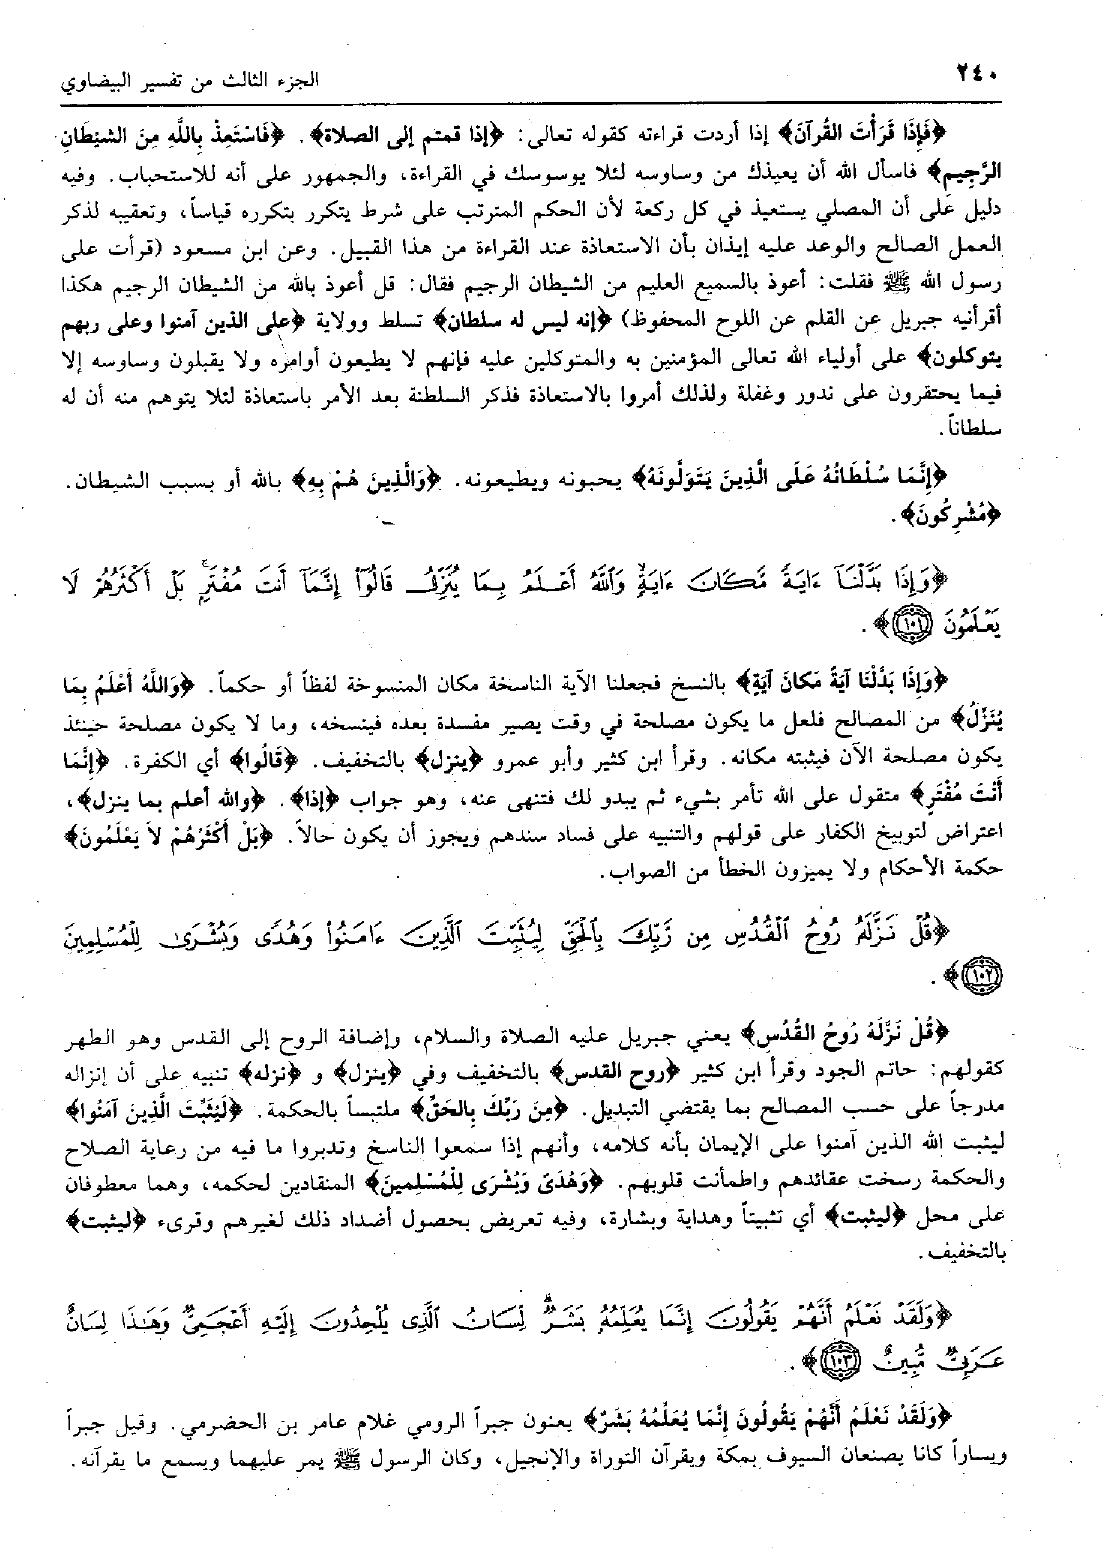 ٢٤٠
الجزء الثالث من تفسير البيضاوي
﴿فَإِذَا قَرَأْتَ القُرآنَ﴾ إذا أردت قراءته كقوله تعالى: ﴿إذا قمتم إلى الصلاة﴾. ﴿فَاسْتَعِذْ بِاللَّهِ مِنَ الشيْطَانِ
الرَّجِيم﴾ فاسأل الله أن يعيذك من وساوسه لئلا يوسوسك في القراءة، والجمهور على أنه للاستحباب. وفيه
دليل على أن المصلي يستعيذ في كل ركعة لأن الحكم المترتب على شرط يتكرر بتكرره قياساً، وتعقيبه لذكر
العمل الصالح والوعد عليه إيذان بأن الاستعاذة عند القراءة من هذا القبيل. وعن ابن مسعود (قرأت على
رسول الله ﷺ فقلت: أعوذ بالسميع العليم من الشيطان الرجيم فقال: قل أعوذ بالله من الشيطان الرجيم هكذا
أقرأنيه جبريل عن القلم عن اللوح المحفوظ) ﴿إنه ليس له سلطان﴾ تسلط وولاية ﴿على الذين آمنوا وعلى ربهم
يتوكلون﴾ على أولياء الله تعالى المؤمنين به والمتوكلين عليه فإنهم لا يطيعون أوامره ولا يقبلون وساوسه إلا
فيما يحتقرون على ندور وغفلة ولذلك أمروا بالاستعاذة فذكر السلطنة بعد الأمر باستعاذة لئلا يتوهم منه أن له
سلطاناً.
﴿إِنَّمَا سُلْطَانُهُ عَلَى الَّذِينَ يَتَوَلَّونَهُ﴾ يحبونه ويطيعونه. ﴿وَالَّذِينَ هُمْ بِهِ﴾ بالله أو بسبب الشيطان.
﴿مُشْرِكُونَ﴾.
﴿وَإِذَا بَدَّلْنَآ ءَايَةً مَّكَانَ ءَايَةٍۙ وَٱللَّهُ أَعْلَمُ بِمَا يُنَزِّلُ قَالُوٓا۟ إِنَّمَآ أَنتَ مُفْتَرٍۭۚ بَلْ أَكْثَرُهُمْ لَا
يَعْلَمُونَ ١٠١﴾.
﴿وَإِذَا بَدَّلْنَا آيَةً مَكَانَ آيَةٍ﴾ بالنسخ فجعلنا الآية الناسخة مكان المنسوخة لفظاً أو حكماً. ﴿وَاللَّهُ أَعْلَمُ بِمَا
يُنَزِّلُ﴾ من المصالح فلعل ما يكون مصلحة في وقت يصير مفسدة بعده فينسخه، وما لا يكون مصلحة حينئذ
يكون مصلحة الآن فيثبته مكانه. وقرأ ابن كثير وأبو عمرو ﴿ينزل﴾ بالتخفيف. ﴿قَالُوا﴾ أي الكفرة. ﴿إِنَّمَا
أَنْتَ مُفْتَرٍ﴾ متقول على الله تأمر بشيء ثم يبدو لك فتنهى عنه، وهو جواب ﴿إذا﴾. ﴿والله أعلم بما ينزل﴾،
اعتراض لتوبيخ الكفار على قولهم والتنبيه على فساد سندهم ويجوز أن يكون حالاً. ﴿بَلْ أَكْثَرُهُمْ لاَ يَعْلَمُونَ﴾
حكمة الأحكام ولا يميزون الخطأ من الصواب.
﴿قُلْ نَزَّلَهُۥ رُوحُ ٱلْقُدُسِ مِن رَّبِّكَ بِٱلْحَقِّ لِيُثَبِّتَ ٱلَّذِينَ ءَامَنُوا۟ وَهُدًى وَبُشْرَىٰ لِلْمُسْلِمِينَ
١٠٢﴾.
﴿قُلْ نَزَّلَهُ رُوحُ القُدُسِ﴾ يعني جبريل عليه الصلاة والسلام، وإضافة الروح إلى القدس وهو الطهر
كقولهم: حاتم الجود وقرأ ابن كثير ﴿روح القدس﴾ بالتخفيف وفي ﴿ينزل﴾ و ﴿نزله﴾ تنبيه على أن إنزاله
مدرجاً على حسب المصالح بما يقتضي التبديل. ﴿مِنَ رَبِّكَ بِالحَقِّ﴾ ملتبساً بالحكمة. ﴿لِيُثَبِّتَ الَّذِينَ آمَنُوا﴾
ليثبت الله الذين آمنوا على الإيمان بأنه كلامه، وأنهم إذا سمعوا الناسخ وتدبروا ما فيه من رعاية الصلاح
والحكمة رسخت عقائدهم واطمأنت قلوبهم. ﴿وَهُدًى وَبُشْرَى لِلْمُسْلِمينَ﴾ المنقادين لحكمه، وهما معطوفان
على محل ﴿ليثبت﴾ أي تثبيتاً وهداية وبشارة، وفيه تعريض بحصول أضداد ذلك لغيرهم وقرىء ﴿ليثبت﴾
بالتخفيف.
﴿وَلَقَدْ نَعْلَمُ أَنَّهُمْ يَقُولُونَ إِنَّمَا يُعَلِّمُهُۥ بَشَرٌۗ لِّسَانُ ٱلَّذِى يُلْحِدُونَ إِلَيْهِ أَعْجَمِىٌّ وَهَٰذَا لِسَانٌ
عَرَبِىٌّ مُّبِينٌ ١٠٣﴾.
﴿وَلَقَدْ نَعْلَمُ أَنَّهُمْ يَقُولُونَ إِنَّمَا يُعَلِّمُهُ بَشَرٌ﴾ يعنون جبراً الرومي غلام عامر بن الحضرمي. وقيل جبراً
ويساراً كانا يصنعان السيوف بمكة ويقرآن التوراة والإنجيل، وكان الرسول ﷺ يمر عليهما ويسمع ما يقرآنه.